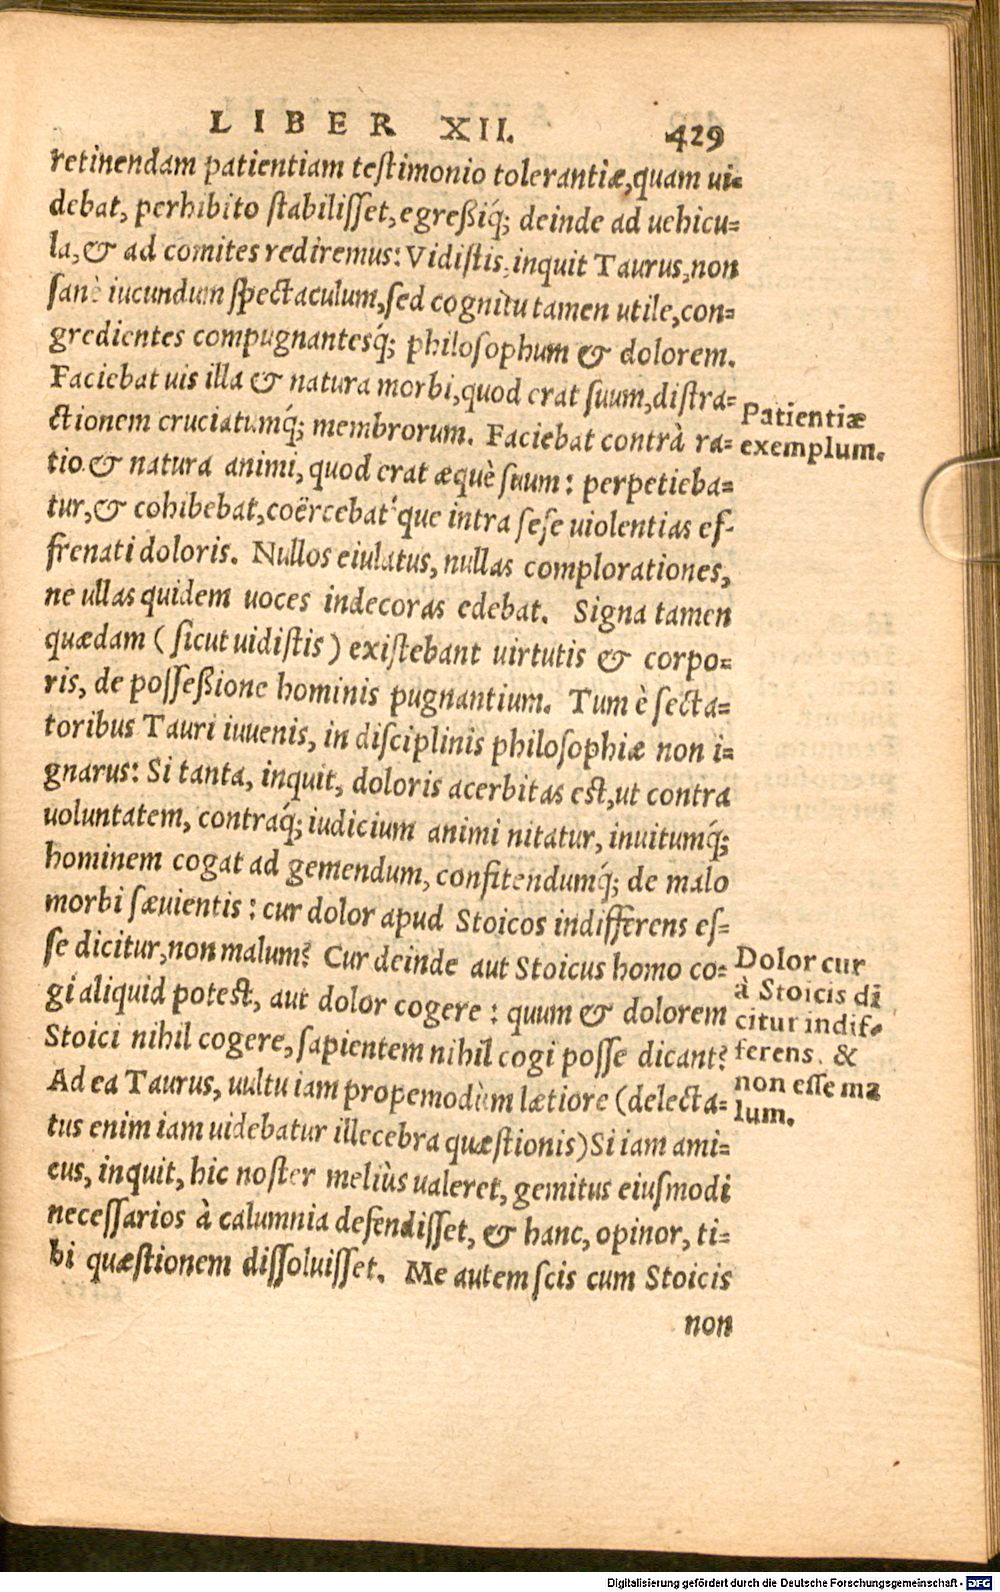 LIBER XII. 429
retinendam patientiam teſtimonio tolerantiæ, quam ui=
debat, perhibito ſtabiliſſet, egreßiq́; deinde ad uehicu=
la, & ad comites rediremus: Vidiſtis, inquit Taurus, non
ſanè iucundum ſpectaculum, ſed cognitu tamen utile, con=
gredientes compugnantesq́; philoſophum & dolorem.
Faciebat uis illa & natura morbi, quod erat ſuum, diſtra=
ctionem cruciatumq́; membrorum. Faciebat contrà ra=
tio & natura animi, quod erat æquè ſuum: perpetieba=
tur, & cohibebat, coërcebat'que intra ſeſe uiolentias ef-
frenati doloris. Nullos eiulatus, nullas complorationes,
ne ullas quidem uoces indecoras edebat. Signa tamen
quædam (ſicut uidiſtis) exiſtebant uirtutis & corpo=
ris, de poſſeßione hominis pugnantium. Tum è ſecta=
toribus Tauri iuuenis, in diſciplinis philoſophiæ non i=
gnarus: Si tanta, inquit, doloris acerbitas eſt, ut contra
uoluntatem, contraq́; iudicium animi nitatur, inuitumq́;
hominem cogat ad gemendum, confitendumq́; de malo
morbi ſæuientis: cur dolor apud Stoicos indifferens eſ=
ſe dicitur, non malum? Cur deinde aut Stoicus homo co=
gi aliquid poteſt, aut dolor cogere: quum & dolorem
Stoici nihil cogere, ſapientem nihil cogi poſſe dicant?
Ad ea Taurus, uultu iam propemodùm lætiore (delecta=
tus enim iam uidebatur illecebra quæſtionis) Si iam ami=
cus, inquit, hic noſter meliùs ualeret, gemitus eiuſmodi
neceſſarios à calumnia defendiſſet, & hanc, opinor, ti=
bi quæſtionem diſſoluiſſet. Me autem ſcis cum Stoicis
non
Patientiæ
exemplum.
Dolor cur
à Stoicis di
citur indif=
ferens, &
non eſſe ma
lum.
Digitalisierung gefördert durch die Deutsche Forschungsgemeinschaft - DFG